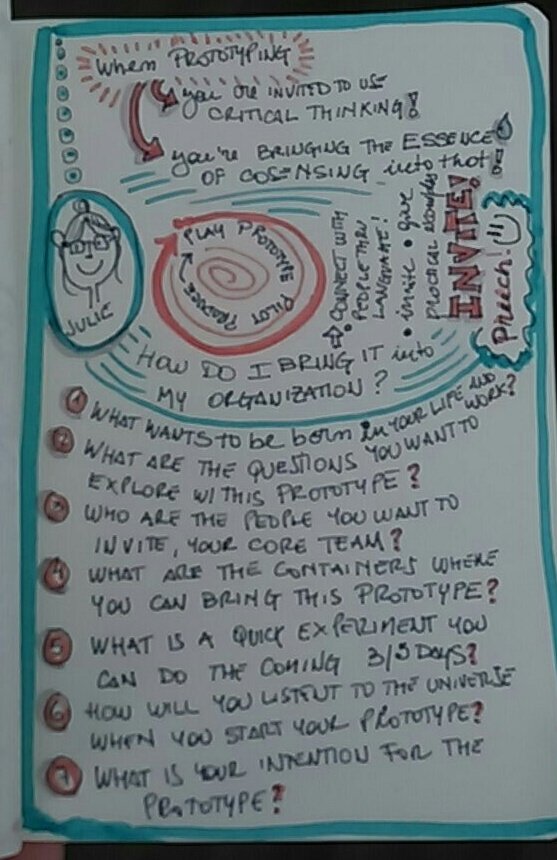 When PROTOTYPING
you are INVITED TO USE
CRITICAL THINKING!
you're BRINGING THE ESSENCE
OF COSENSING into that!
JULIE
PLAY PROTOTYPE PILOT PRODUCE
CONNECT WITH
PEOPLE THRU
LANGUAGE!
• invite • give
practical examples
INVITE!
HOW DO I BRING IT into
MY ORGANIZATION?
1 WHAT WANTS to be born IN YOUR LIFE AND
WORK?
2 WHAT ARE THE QUESTIONS YOU WANT TO
EXPLORE W/ THIS PROTOTYPE?
3 WHO ARE THE PEOPLE YOU WANT TO
INVITE, YOUR CORE TEAM?
4 WHAT ARE THE CONTAINERS WHERE
YOU CAN BRING THIS PROTOTYPE?
5 WHAT IS A QUICK EXPERIMENT YOU
CAN DO THE COMING 3/5 DAYS?
6 HOW WILL YOU LISTENT TO THE UNIVERSE
WHEN YOU START YOUR PROTOTYPE?
7 WHAT IS YOUR INTENTION FOR THE
PROTOTYPE?